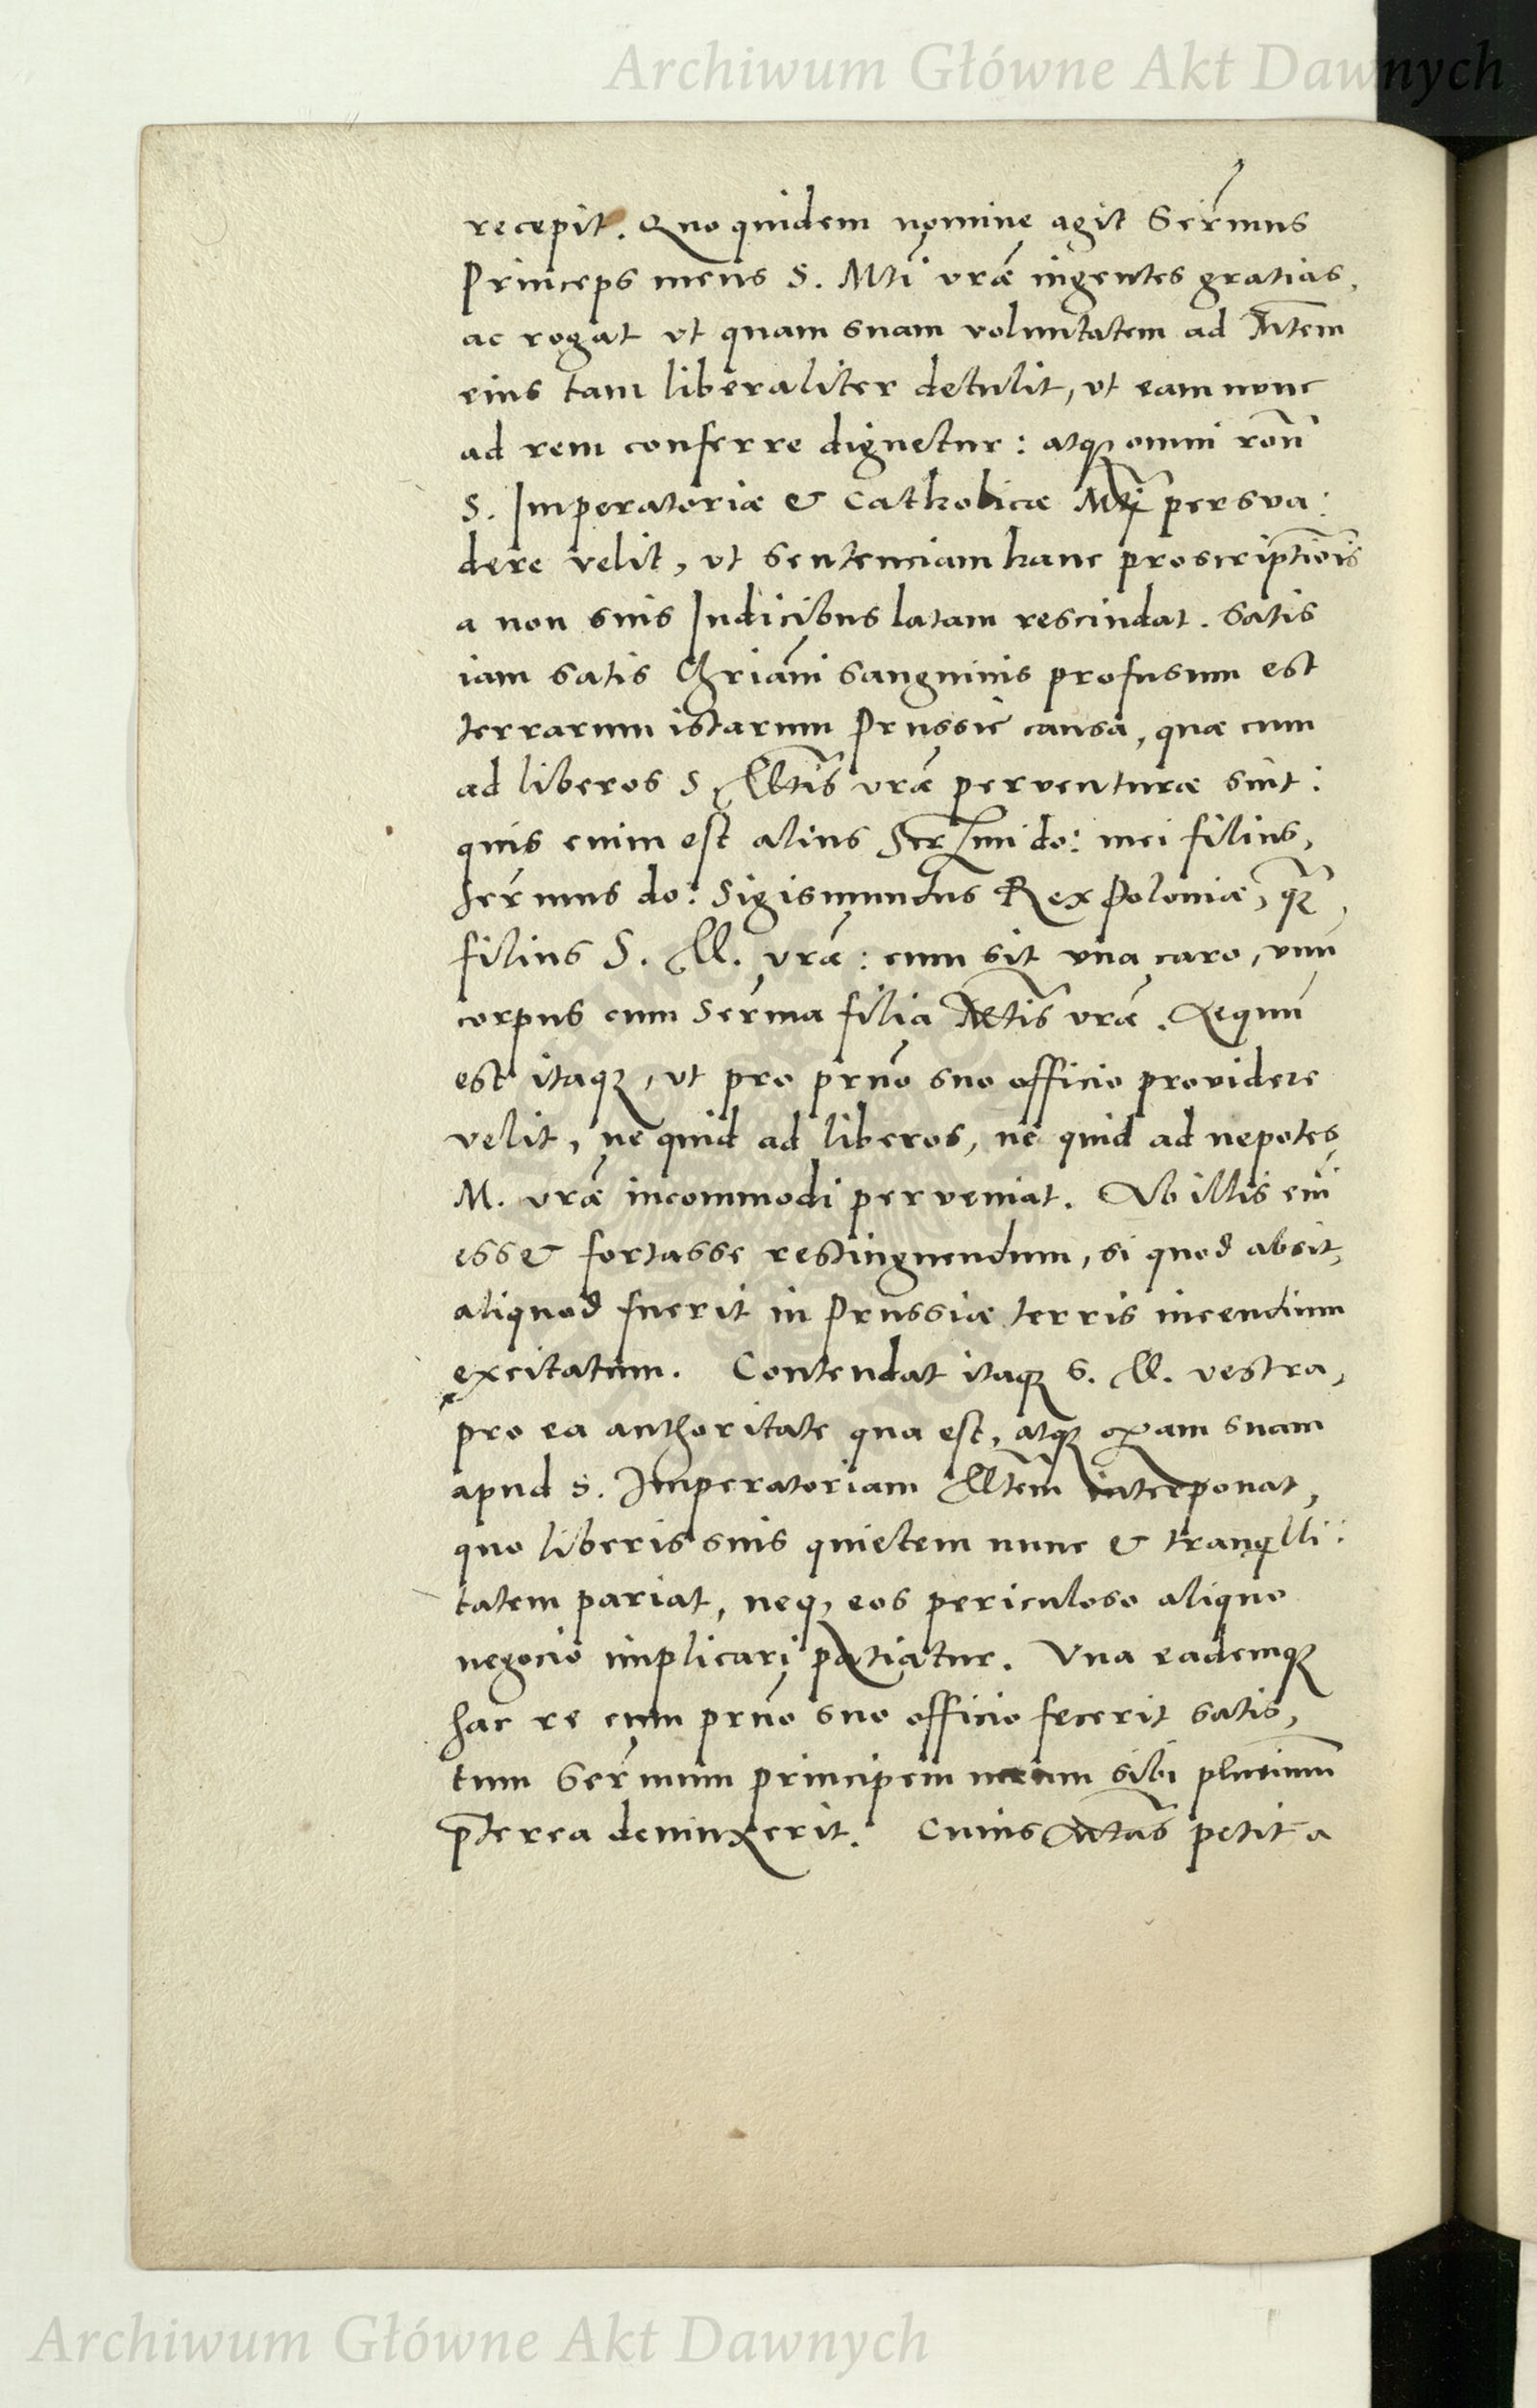 Archiwum Główne Akt Dawnych
recepit. Quo quidem nomine agit Serm̃us
Princeps meus S. Mti vrãe ingentes gratias,
ac rogat vt quam suam voluntatem ad Mtem
eius tam liberaliter detulit, vt eam nunc
ad rem conferre dignetur: atq omni rõn
S. Imperatoriæ & Catholicæ Mti persua:
dere velit, vt sentenciam hanc proscriptiõis
a non suis Iudicibus latam rescindat. Satis
iam satis Chriãni sanguinis profusum est
terrarum istarum Prussie causa, quæ cum
ad liberos S. Mtis vrãe perventuræ sint:
quis enim est alius Sermi do: mei filius,
Sermus do: Sigismundus Rex Poloniæ, q̃
filius S. M. vrãe: cum sit vna caro, vnũ
corpus cum Serma filia Mtis vrãe. Aequũ
est itaq, vt pro prño suo officio providere
velit, ne quid ad liberos, ne quid ad nepotes
M. vrãe incommodi perveniat. Ab illis eñi
esset fortasse restinguendum, si quod absit,
aliquod fuerit in Prussiæ terris incendium
excitatum. Contendat itaq S. M. vestra,
pro ea authoritate qua est, atq opam suam
apud S. Imperatoriam Mtem interponat,
quo liberis suis quietem nunc & tranqlli:
tatem pariat, neq, eos periculoso aliquo
negocio implicari patiatur. Vna eademq
hac re cum prño suo officio fecerit satis,
tum Sermum principem meum sibi plurimum
p̃terea deuinxerit. Cuius Mtas petit a
Archiwum Główne Akt Dawnych